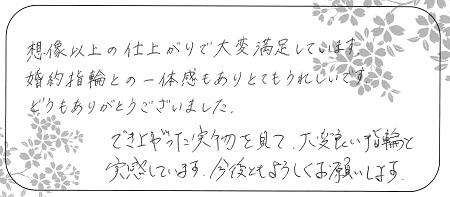 想像以上の仕上がりで大変満足しています。
婚約指輪との一体感もありとてもうれしいです。
どうもありがとうございました。
でき上がった実物を見て、大変良い指輪と
実感しています。今後ともよろしくお願いします。